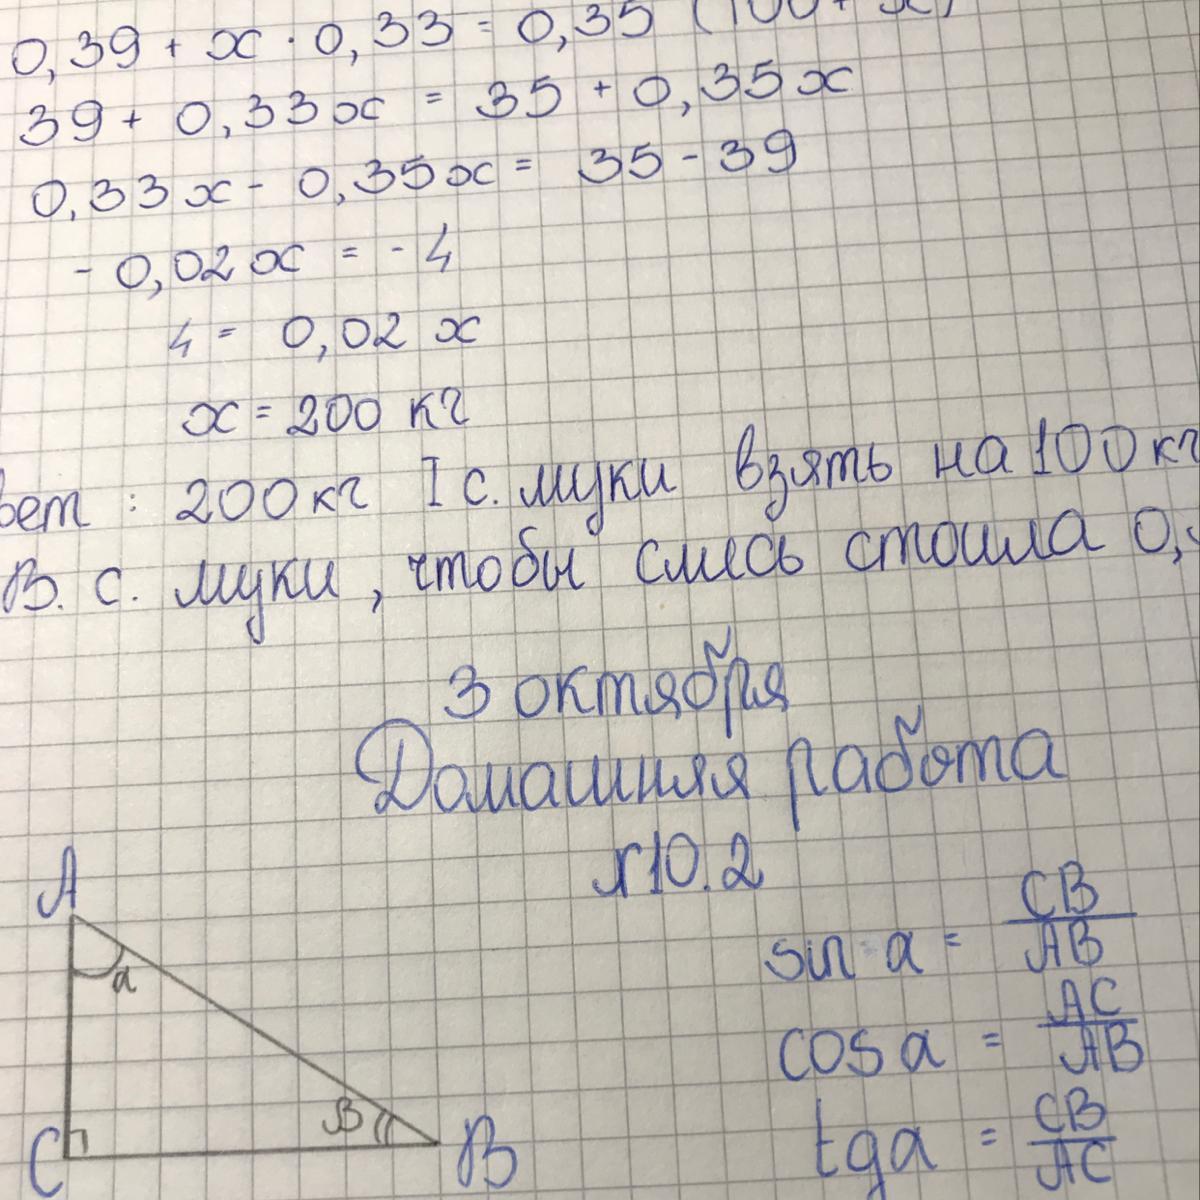 0,39 + x · 0,33 = 0,35 (100 + x)
39 + 0,33x = 35 + 0,35x
0,33x - 0,35x = 35 - 39
- 0,02x = - 4
4 = 0,02 x
x = 200 кг
вет : 200кг I с. муки взять на 100 кг
В. с. муки, чтобы смесь стоила 0,
3 октября
Домашняя работа
№10.2
A
a
B
C
B
sin a = CB/AB
cos a = AC/AB
tg a = CB/AC